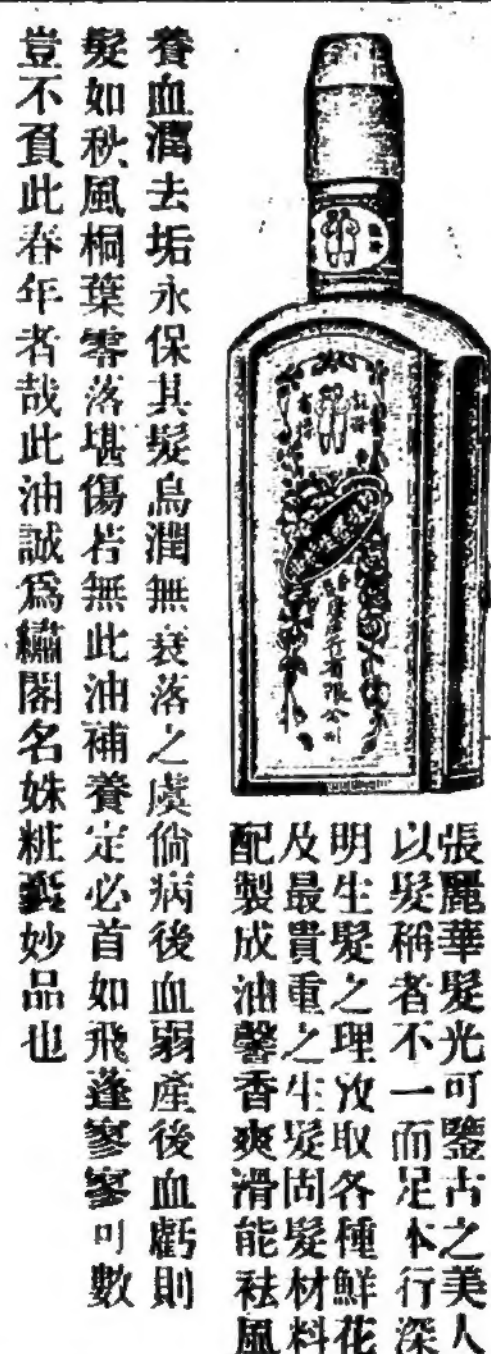 張麗華髮光可鑒古之美人
以髮稱者不一而足本行深
明生髮之理故取各種鮮花
及最貴重之生髮固髮材料
配製成油馨香爽滑能袪風
養血潤去垢永保其髮烏潤無衰落之虞倘病後血弱產後血虧則
髮如秋風桐葉零落堪傷若無此油補養定必首如飛蓬寥寥可數
豈不負此春年者哉此油誠為繡閣名姝粧臺妙品也
有限公司